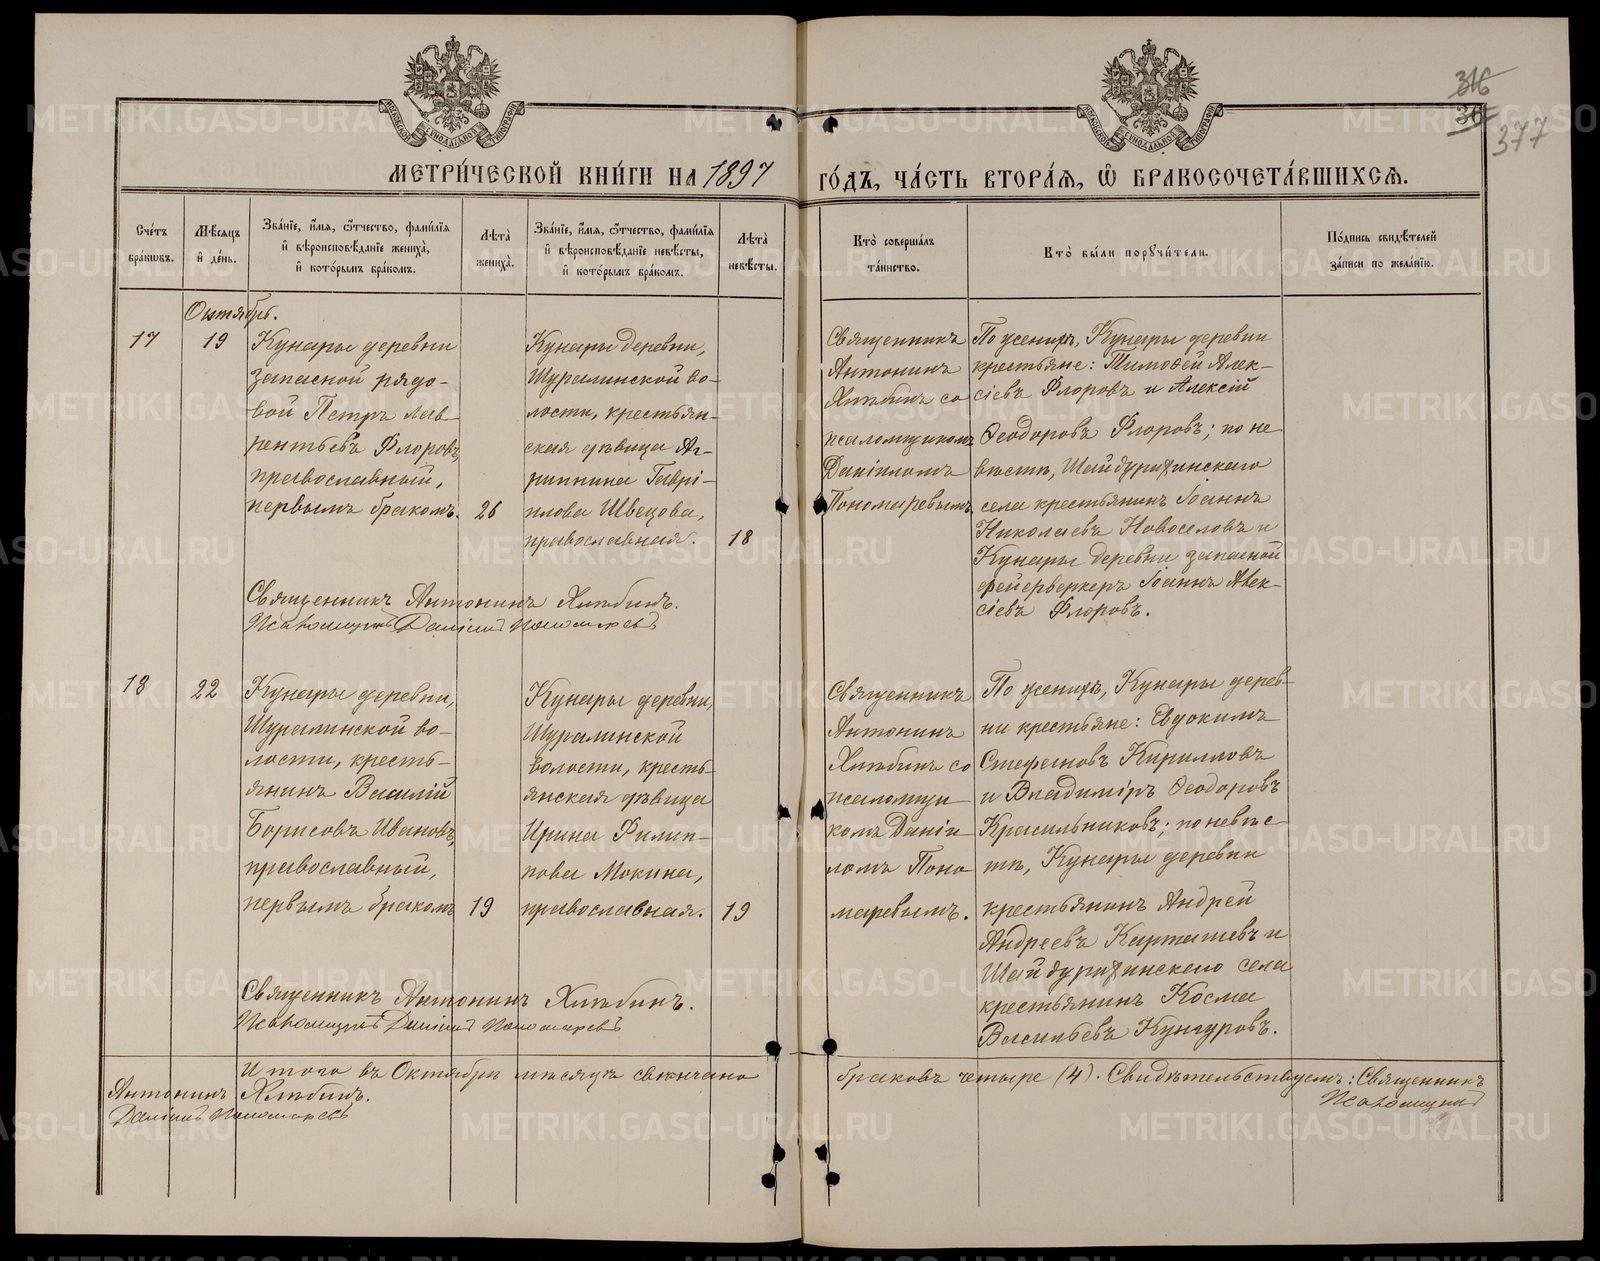 316
377
МОСКОВСКОЙ СѴНОДАЛЬНОЙ ТИПОГРАФІИ
МОСКОВСКОЙ СѴНОДАЛЬНОЙ ТИПОГРАФІИ
МЕТРИ́ЧЕСКОЙ КНИ́ГИ НА 1897 ГО́ДЪ, ЧА́СТЬ ВТОРА́Я, Ѡ БРАКОСОЧЕТА́ВШИХСѦ.
Сче́тъ бра́ковъ.
Мѣ́сяцъ и де́нь.
Зва́нїе, и́мя, ѻ́тчество, фами́лїя и вѣроисповѣ́данїе жениха̀, и кото́рымъ бра́комъ.
Лѣта̀ жениха̀.
Зва́нїе, и́мя, ѻ́тчество, фами́лїя и вѣроисповѣ́данїе невѣ́сты, и кото́рымъ бра́комъ.
Лѣта̀ невѣ́сты.
Кто̀ соверша́лъ та́инство.
Кто̀ были порꙋчи́тели.
По́дпись свидѣ́телей за́писи по жела́нїю.
Октябрь.
17
19
Кунары деревни
запасной рядо-
вой Петръ Лав-
рентьевъ Флоровъ,
православный,
первымъ бракомъ.
26
Кунары деревни,
Шуралинской во-
лости, крестьян-
ская дѣвица Аг-
риппина Гаврі-
илова Швецова,
православная.
18
Священникъ
Антонинъ
Хлѣбинъ со
псаломщикомъ
Даніиломъ
Пономаревымъ
По женихѣ, Кунары деревни
крестьяне: Тимоѳей Алек-
сіевъ Флоровъ и Алексій
Ѳеодоровъ Флоровъ; по не-
вѣстѣ, Шайдурихинскаго
села крестьянинъ Іоаннъ
Николаевъ Новоселовъ и
Кунары деревни запасной
фейерверкеръ Іоаннъ Алек-
сіевъ Флоровъ.
Священникъ Антонинъ Хлѣбинъ.
Псаломщикъ Даніилъ Пономаревъ
18
22
Кунары деревни,
Шуралинской во-
лости, кресть-
янинъ Василій
Борисовъ Ивановъ,
православный,
первымъ бракомъ
19
Кунары деревни,
Шуралинской
волости, кресть-
янская дѣвица
Ирина Филип-
пова Мокина,
православная.
19
Священникъ
Антонинъ
Хлѣбинъ со
псаломщи-
комъ Даніи-
ломъ Поно-
маревымъ.
По женихѣ, Кунары дерев-
ни крестьяне: Евдокимъ
Стефановъ Кирилловъ
и Владиміръ Ѳеодоровъ
Красильниковъ; по невѣс-
тѣ, Кунары деревни
крестьянинъ Андрей
Андреевъ Карташевъ и
Шайдурихинскаго села
крестьянинъ Косма
Васильевъ Кунгуровъ.
Священникъ Антонинъ Хлѣбинъ.
Псаломщикъ Даніилъ Пономаревъ
Итого въ Октябрѣ мѣсяцѣ свѣнчано браковъ четыре (4). Свидѣтельствуемъ: Священникъ
Антонинъ Хлѣбинъ.
Псаломщикъ
Даніилъ Пономаревъ
METRIKI.GASO-URAL.RU